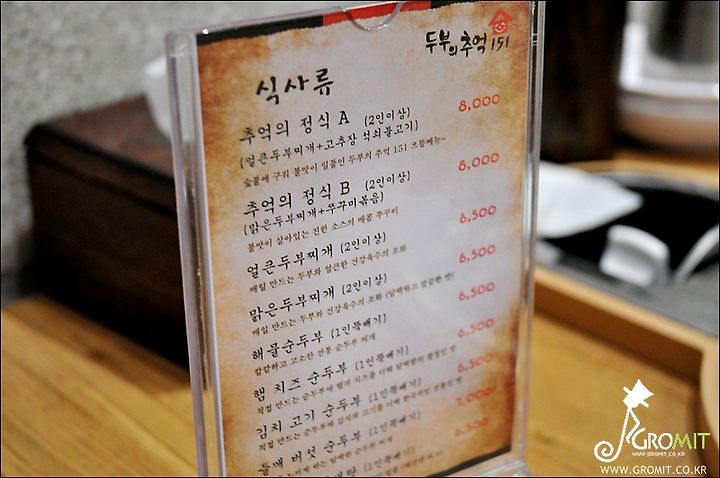 두부의추억 151
식사류
추억의 정식 A (2인이상) 8,000
(얼큰두부찌개+고추장 석쇠불고기)
숯불에 구워 불맛이 일품인 두부의 추억 151 으뜸메뉴~
추억의 정식 B (2인이상) 8,000
(맑은두부찌개+쭈꾸미볶음)
불맛이 살아있는 진한 소스의 매콤 쭈꾸미
얼큰두부찌개 (2인이상) 6,500
매일 만드는 두부와 얼큰한 건강육수의 조화
맑은두부찌개 (2인이상) 6,500
매일 만드는 두부와 건강육수의 조화 (담백하고 깔끔한 맛)
해물순두부 (1인뚝배기) 6,500
칼칼하고 고소한 전통 순두부 찌개
햄 치즈 순두부 (1인뚝배기) 6,500
직접 만드는 순두부에 햄과 치즈를 더해 담백함의 절정인 맛
김치 고기 순두부 (1인뚝배기) 6,500
직접 만드는 순두부에 김치와 고기를 더해 한국적인 전통의 맛
들깨 버섯 순두부 (1인뚝배기) 7,000
담백한 순두부 찌개
(1인뚝배기) 6,500
GROMIT
WWW.GROMIT.CO.KR
WWW.GROMIT.CO.KR